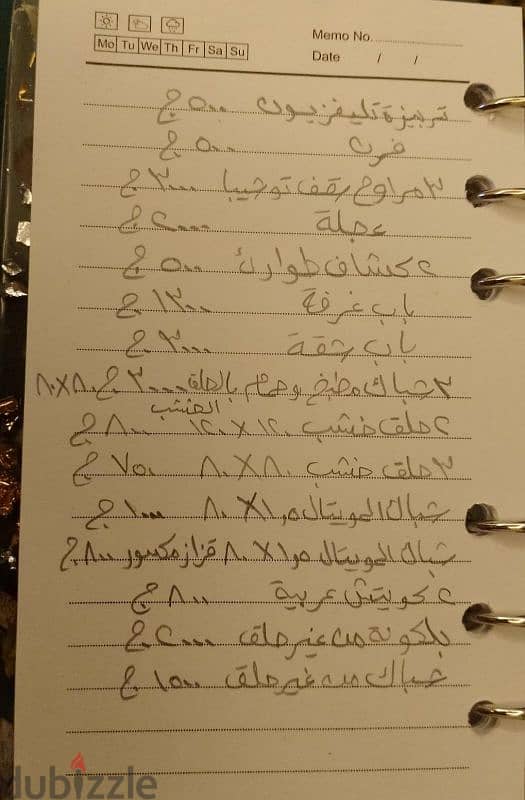 Memo No.
Mo Tu We Th Fr Sa Su
Date / /
تربيزة تليفزيون ٥٠٠ ج
فرن ٥٠٠ ج
٣ مراوح سقف توشيبا ٣٠٠٠ ج
عجلة ٢٠٠٠ ج
٢ كشاف طوارئ ٥٠٠ ج
باب غرفة ١٣٠٠ ج
باب شقة ٣٠٠٠ ج
٣ شباك مطبخ وحمام بالحلق ٣٠٠٠ ج ٨٠X٨٠
الخشب
٢ حلق خشب ١٢٠X١٢٠ ٨٠٠ ج
٣ حلق خشب ٨٠X٨٠ ٧٥٠ ج
شباك الوميتال ١,٥X٨٠ ١٠٠٠ ج
شباك الوميتال ١,٥X٨٠ قزاز مكسور ٨٠٠ ج
٤ كويتش عربية ٨٠٠ ج
بلكونة من غير حلق ٢٠٠٠ ج
شباك من غير حلق ١٥٠٠ ج
dubizzle